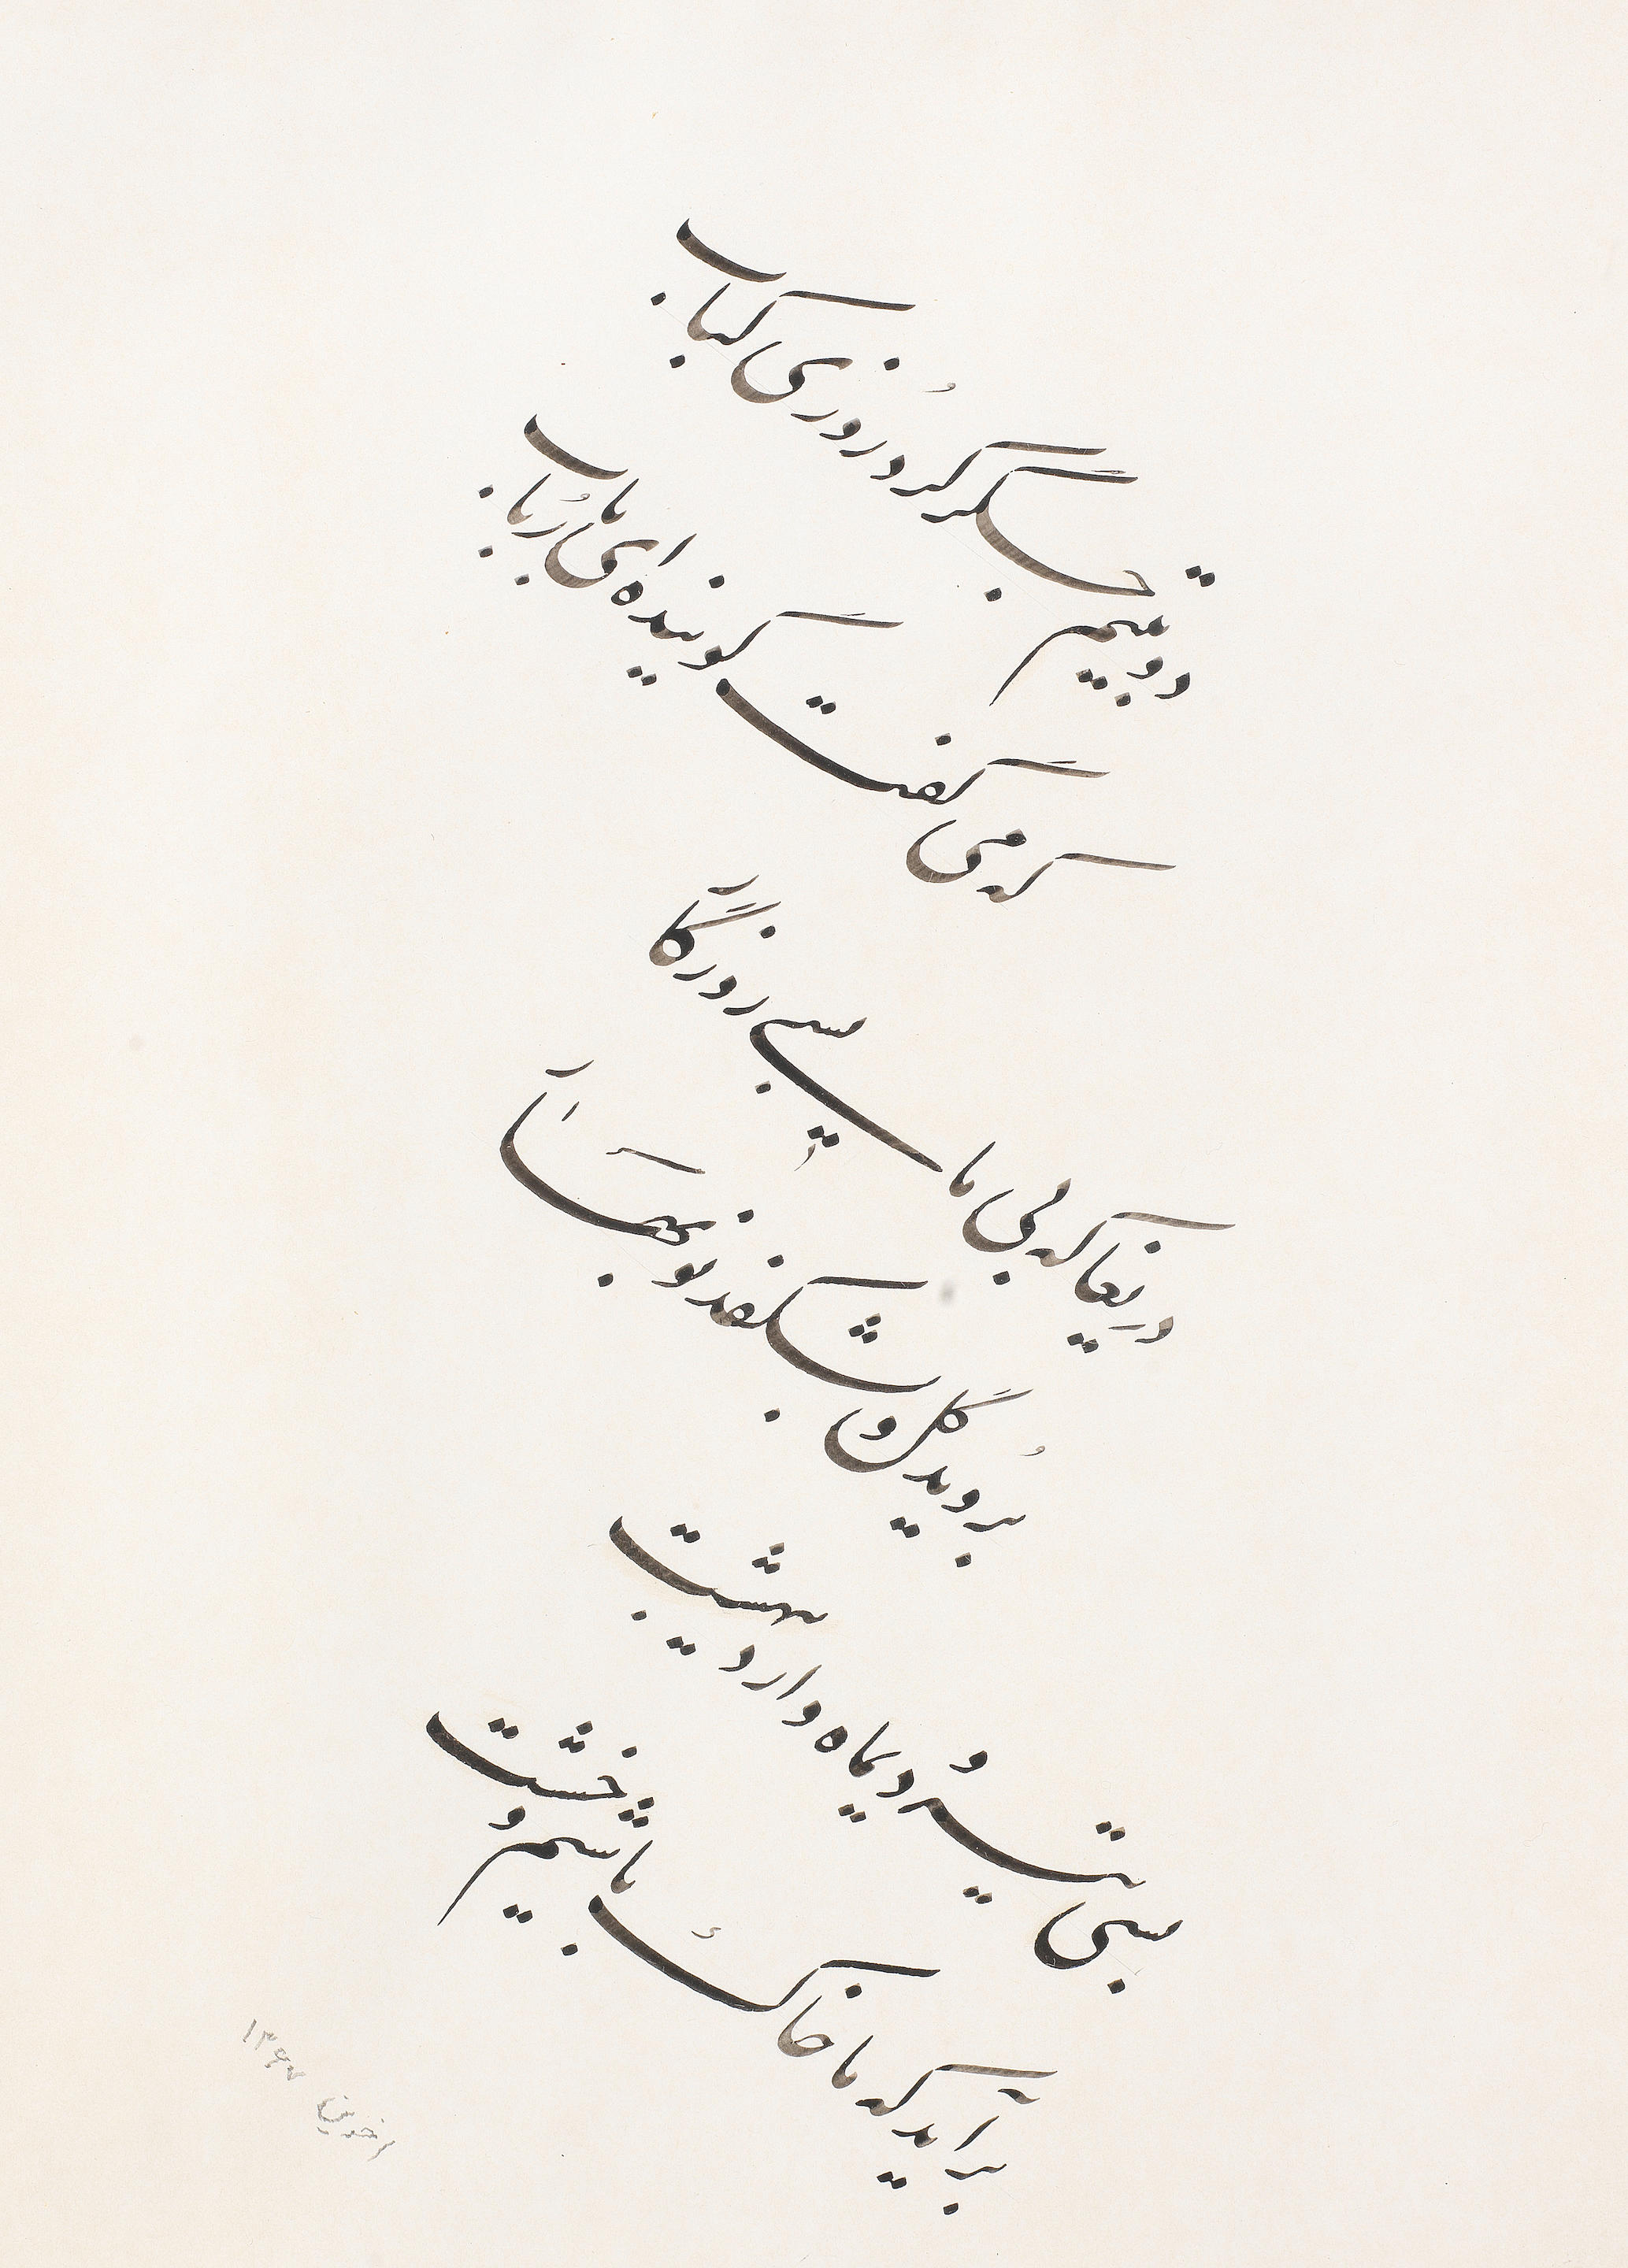 دو بیتم جگر کرد روزی کباب
که می گفت گوینده ای با رُباب
دریغا که بی ما بسی روزگار
بروید گل و بشکفد نوبهار
بسی تیر و دیماه و اردیبهشت
برآید که ما خاک باشیم و خشت
اخوین ۱۳۶۷